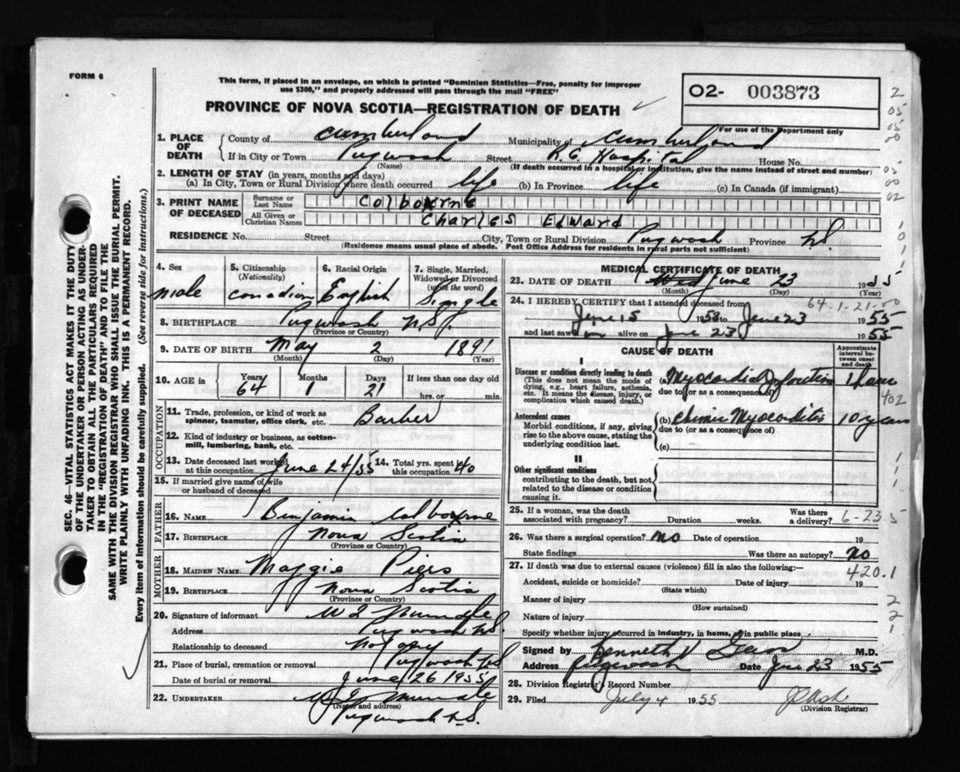 FORM 6
This form, if placed in an envelope, on which is printed "Dominion Statistics—Free, penalty for improper
use $300," and properly addressed will pass through the mail "FREE"
PROVINCE OF NOVA SCOTIA—REGISTRATION OF DEATH
O2- 003873
For use of the Department only
1. PLACE OF DEATH County of Cumberland Municipality of Cumberland
If in City or Town Pugwash Street Hospital House No.
(Name) (If death occurred in a hospital or institution, give the name instead of street and number)
2. LENGTH OF STAY (in years, months and days)
(a) In City, Town or Rural Division where death occurred life (b) In Province life (c) In Canada (if immigrant)
3. PRINT NAME OF DECEASED Surname or Last Name Colbourne
All Given or Christian Names Charles Edward
RESIDENCE No. Street City, Town or Rural Division Pugwash Province N.S.
(Residence means usual place of abode. Post Office Address for residents in rural parts not sufficient)
4. Sex 5. Citizenship (Nationality) 6. Racial Origin 7. Single, Married, Widowed or Divorced (write the word)
male Canadian English Single
8. BIRTHPLACE Pugwash N.S.
(Province or Country)
9. DATE OF BIRTH May 2 1891
(Month) (Day) (Year)
10. AGE in Years Months Days If less than one day old
64 1 21 hrs. or min.
OCCUPATION
11. Trade, profession, or kind of work as
spinner, teamster, office clerk, etc. Barber
12. Kind of industry or business, as cotton-
mill, lumbering, bank, etc.
13. Date deceased last worked at this occupation June 24/55 14. Total yrs. spent in this occupation 40
15. If married give name of wife
or husband of deceased
FATHER
16. NAME Benjamin Colbourne
17. BIRTHPLACE Nova Scotia
(Province or Country)
MOTHER
18. MAIDEN NAME Maggie Piers
19. BIRTHPLACE Nova Scotia
(Province or Country)
20. Signature of informant
Address Pugwash N.S.
Relationship to deceased
21. Place of burial, cremation or removal Pugwash N.S.
Date of burial or removal June 26 1955
22. UNDERTAKER
(Name and address)
Pugwash N.S.
MEDICAL CERTIFICATE OF DEATH
23. DATE OF DEATH June 23 1955
(Month) (Day) (Year)
24. I HEREBY CERTIFY that I attended deceased from 64-1-21-00
June 15 to June 23 1955
and last saw alive on June 23 1955
CAUSE OF DEATH
Approximate interval between onset and death
I
Disease or condition directly leading to death
(This does not mean the mode of dying, e.g., heart failure, asthenia, etc. It means the disease, injury, or complication which caused death.)
(a) Myocardial Infarction 1 hour
due to (or as a consequence of)
402
Antecedent causes
Morbid conditions, if any, giving rise to the above cause, stating the underlying condition last.
(b) Chronic Myocarditis 10 years
due to (or as a consequence of)
(c)
II
Other significant conditions
contributing to the death, but not related to the disease or condition causing it.
25. If a woman, was the death associated with pregnancy? Duration weeks. Was there a delivery? 6-23 5
26. Was there a surgical operation? No Date of operation 19
State findings Was there an autopsy? No
27. If death was due to external causes (violence) fill in also the following:— 420.1
Accident, suicide or homicide? Date of injury 19
(State which)
Manner of injury
(How sustained)
Nature of injury
Specify whether injury occurred in industry, in home, or in public place
Signed by Kenneth M.D.
Address Pugwash Date June 23 1955
28. Division Registrar's Record Number
29. Filed July 4 1955
(Division Registrar)
SEC. 46—VITAL STATISTICS ACT MAKES IT THE DUTY
OF THE UNDERTAKER OR PERSON ACTING AS UNDER-
TAKER TO OBTAIN ALL THE PARTICULARS REQUIRED
IN THE "REGISTRATION OF DEATH" AND TO FILE THE
SAME WITH THE DIVISION REGISTRAR WHO SHALL ISSUE THE BURIAL PERMIT.
WRITE PLAINLY WITH UNFADING INK. THIS IS A PERMANENT RECORD.
Every item of information should be carefully supplied. (See reverse side for instructions.)